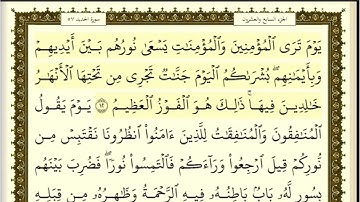 الجزء السابع والعشرون سورة الحديد ٥٧
يَوْمَ تَرَى ٱلْمُؤْمِنِينَ وَٱلْمُؤْمِنَٰتِ يَسْعَىٰ نُورُهُم بَيْنَ أَيْدِيهِمْ
وَبِأَيْمَٰنِهِم ۖ بُشْرَىٰكُمُ ٱلْيَوْمَ جَنَّٰتٌ تَجْرِى مِن تَحْتِهَا ٱلْأَنْهَٰرُ
خَٰلِدِينَ فِيهَا ۚ ذَٰلِكَ هُوَ ٱلْفَوْزُ ٱلْعَظِيمُ ١٢ يَوْمَ يَقُولُ
ٱلْمُنَٰفِقُونَ وَٱلْمُنَٰفِقَٰتُ لِلَّذِينَ ءَامَنُوا۟ ٱنظُرُونَا نَقْتَبِسْ مِن
نُّورِكُمْ قِيلَ ٱرْجِعُوا۟ وَرَآءَكُمْ فَٱلْتَمِسُوا۟ نُورًا ۖ فَضُرِبَ بَيْنَهُم
بِسُورٍ لَّهُۥ بَابٌۢ بَاطِنُهُۥ فِيهِ ٱلرَّحْمَةُ وَظَٰهِرُهُۥ مِن قِبَلِهِ